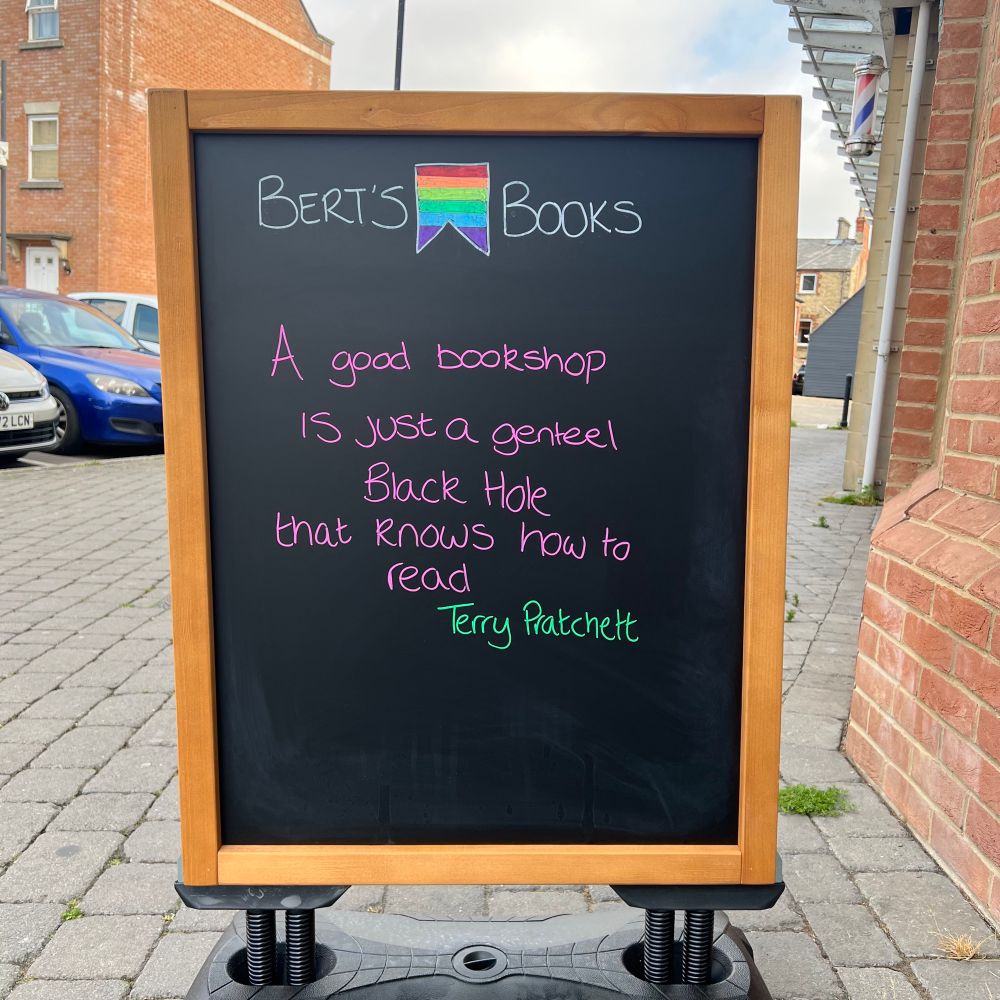 BERT'S BOOKS
A good bookshop
is just a genteel
Black Hole
that knows how to
read
Terry Pratchett
2 LCN